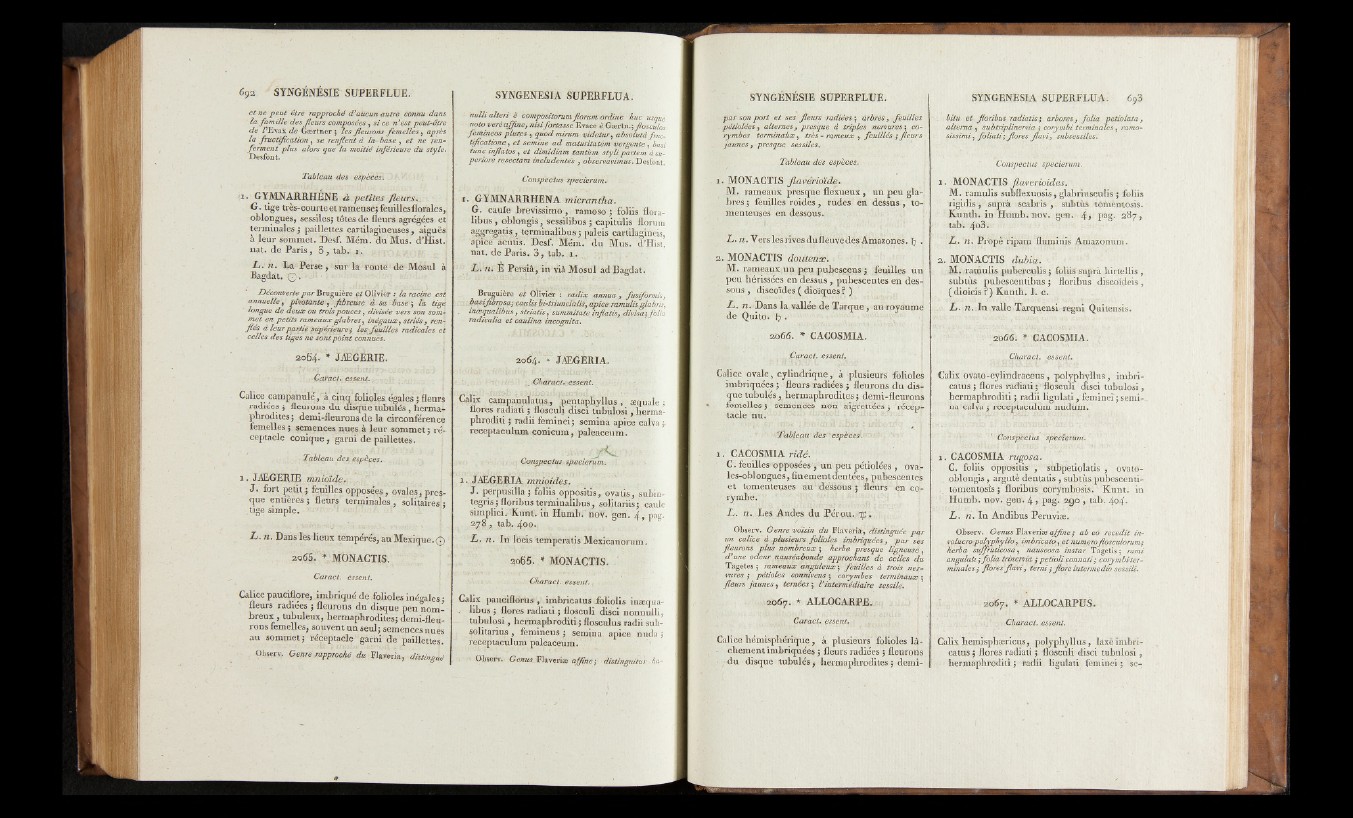 692 SYNGÉNÉSIE SUPERFLUE.
et ne peut être rapproché d'aucun autre connu dans
la famille des fleurs composées, si ce n'est peut-être
de l'Evax de Gærtner; les fleurons femelles, après
la fructification, se renflent à la base, et ne ren-
ferment plus alors que la moitié inférieure du style.
Desfont.
Tableau des espèces.
1. GYMNARRHÈNE à petites fleurs.
G. tige très-courte et rameuse; feuilles florales,
oblongues, sessiles; têtes de fleurs agrégées et
terminales; paillettes cartilagineuses, aiguës
à leur sommet. Desf. Mém. du Mus. d'Hist.
nat. de Paris, 3, tab. 1.
L. n. La Perse, sur la route de Mosul à
Bagdat. ☉.
Découverte par Bruguière et Olivier: la racine est
annuelle, pivotante, fibreuse à sa base; la tige
longue de deux ou trois pouces, divisée vers son som-
met en petits rameaux glabres, inégaux, striés, ren-
flés à leur partie supérieure; les feuilles radicales et
celles des tiges ne sont point connues.
2064. * JÆGERIE.
Caract. essent.
Calice campanulé, à cinq folioles égales; fleurs
radiées; fleurons du disque tubulés, herma-
phrodites; demi-fleurons de la circonférence
femelles; semences nues à leur sommet; ré-
ceptacle conique, garni de paillettes.
Tableau des espèces.
1. JÆGERIE mnioïde.
J. fort petit; feuilles opposées, ovales, pres-
que entières; fleurs terminales, solitaires;
tige simple.
L. n. Dans les lieux tempérés, au Mexique. ☉
2065. * MONACTIS.
Caract. essent.
Calice pauciflore, imbriqué de folioles inégales;
fleurs radiées; fleurons du disque peu nom-
breux, tubuleux, hermaphrodites; demi-fleu-
rons femelles, souvent un seul; semences nues
au sommet; réceptacle garni de paillettes.
Observ. Genre rapproché du Flaveria, distingué
SYNGENESIA SUPERFLUA.
nulli alteri è compositorum florum ordine huc usque
noto verè affine, nisi fortasse Evace à Gærtn.; flosculos
femineos plures, quod mirum videtur, absolutâ fruc-
tificatione, et semine ad maturitatem vergente, basi
tunc inflatos, et dimidiam tantùm styli partem à su-
periore resectam includentes, observavimus. Desfont.
Conspectus specierum.
1. GYMNARRHENA micrantha.
G. caule brevissimo, ramoso; foliis flora-
libus, oblongis, sessilibus; capitulis florum
aggregatis, terminalibus; paleis cartilagineis,
apice acutis. Desf. Mém. du Mus. d'Hist.
nat. de Paris. 3, tab. 1.
L. n. È Persiâ, in viâ Mosul ad Bagdat.
Bruguière et Olivier: radix annua, fusiformis,
basi fibrosa; caulis bi-triuncialis, apice ramulis glabris,
inæqualibus, striatis, summitate inflatis, divisus; folia
radicalia et caulina incognita.
2064. * JÆGERIA.
Charact. essent.
Calix campanulatus, pentaphyllus, æqualis;
flores radiati; flosculi disci tubulosi, herma-
phroditi; radii feminei; semina apice calva;
receptaculum conicum, paleaceum.
Conspectus specierum.
1. JÆGERIA mnioides.
J. perpusilla; foliis oppositis, ovatis, subin-
tegris; floribus terminalibus, solitariis; caule
simplici. Kunt. in Humb. nov. gen. 4, pag.
278, tab. 400.
L. n. In locis temperatis Mexicanorum.
2065. * MONACTIS.
Charact. essent.
Calix pauciflorus, imbricatus foliolis inæqua-
libus; flores radiati; flosculi disci nonnulli,
tubulosi, hermaphroditi; flosculus radii sub-
solitarius, femineus; semina apice nuda;
receptaculum paleaceum.
Observ. Genus Flaveriæ affine; distinguitur ha-
SYNGÉNÉSIE SUPERFLUE.
par son port et ses fleurs radiées; arbres, feuilles
pétiolées, alternes, presque à triples nervures; co-
rymbes terminaux, très-rameux, feuillés; fleurs
jaunes, presque sessiles.
Tableau des espèces.
1. MONACTIS flavérioïde.
M. rameaux presque flexueux, un peu gla-
bres; feuilles roides, rudes en dessus, to-
menteuses en dessous.
L. n. Vers les rives du fleuve des Amazones. ♄.
2. MONACTIS douteux.
M. rameaux un peu pubescens; feuilles un
peu hérissées en dessus, pubescentes en des-
sous, discoïdes (dioïques?)
L. n. Dans la vallée de Tarque, au royaume
de Quito. ♄.
2066. * CACOSMIA.
Caract. essent.
Calice ovale, cylindrique, à plusieurs folioles
imbriquées; fleurs radiées; fleurons du dis-
que tubulés, hermaphrodites; demi-fleurons
femelles; semences non aigrettées, récep-
tacle nu.
Tableau des espèces.
1. CACOSMIA ridé.
C. feuilles opposées, un peu pétiolées, ova-
les-oblongues, finement dentées, pubescentes
et tomenteuses au dessous; fleurs en co-
rymbe.
L. n. Les Andes du Pérou. ♃.
Observ. Genre voisin du Flaveria, distinguée par
un calice à plusieurs folioles imbriquées, par ses
fleurons plus nombreux; herbe presque ligneuse,
d'une odeur nauséabonde approchant de celles du
Tagetes; rameaux anguleux; feuilles à trois ner-
vures; pétioles connivens; corymbes terminaux;
fleurs jaunes, ternées; l'intermédiaire sessile.
2067. * ALLOCARPE.
Caract. essent.
Calice hémisphérique, à plusieurs folioles lâ-
chement imbriquées; fleurs radiées; fleurons
du disque tubulés, hermaphrodites; demi-
SYNGENESIA SUPERFLUA. 693
bitu et floribus radiatis; arbores, folia petiolata,
alterna, subtriplinervia; corymbi terminales, ramo-
sissimi, foliati; flores flavi, subsessiles.
Conspectus specierum.
1. MONACTIS flaverioides.
M. ramulis subflexuosis, glabriusculis; foliis
rigidis, suprà scabris, subtùs tomentosis.
Kunth. in Humb. nov. gen. 4, pag. 287,
tab. 403.
L. n. Propè ripam fluminis Amazonum.
2. MONACTIS dubia.
M. ramulis puberculis; foliis suprà hirtellis,
subtùs pubescentibus; floribus discoïdeis,
(dioicis?) Kunth. l. c.
L. n. In valle Tarquensi regni Quitensis.
2066. * CACOSMIA.
Charact. essent.
Calix ovato-cylindraceus, polyphyllus, imbri-
catus; flores radiati; flosculi disci tubulosi,
hermaphroditi; radii ligulati, feminei; semi-
na calva; receptaculum nudum.
Conspectus specierum.
1. CACOSMIA rugosa.
C. foliis oppositis, subpetiolatis, ovato-
oblongis, argutè dentatis, subtùs pubescenti-
tomentosis; floribus corymbosis. Kunt. in
Humb. nov. gen. 4, pag. 290, tab. 404.
L. n. In Andibus Peruviæ.
Observ. Genus Flaveriæ affine; ab eo recedit in-
volucro polyphyllo, imbricato, et numero flosculorum;
herba suffruticosa, nauseosa instar Tagetis; rami
angulati; folia trinervia; petioli connati; corymbi ter-
minales; flores flavi, terni; flore intermedio sessili.
2067. * ALLOCARPUS.
Charact. essent.
Calix hemisphæricus, polyphyllus, laxè imbri-
catus; flores radiati; flosculi disci tubulosi,
hermaphroditi; radii ligulati feminei; se-